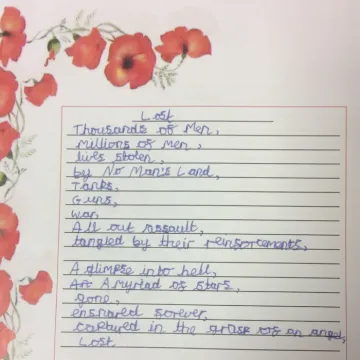 Lost
Thousands of Men,
Millions of men,
lives stolen,
by No Man's Land,
Tanks,
Guns,
War,
All out assault,
tangled by their reinforcements,
A glimpse into hell,
A myriad of stars,
gone,
ensnared forever,
captured in the grasp of an angel,
Lost